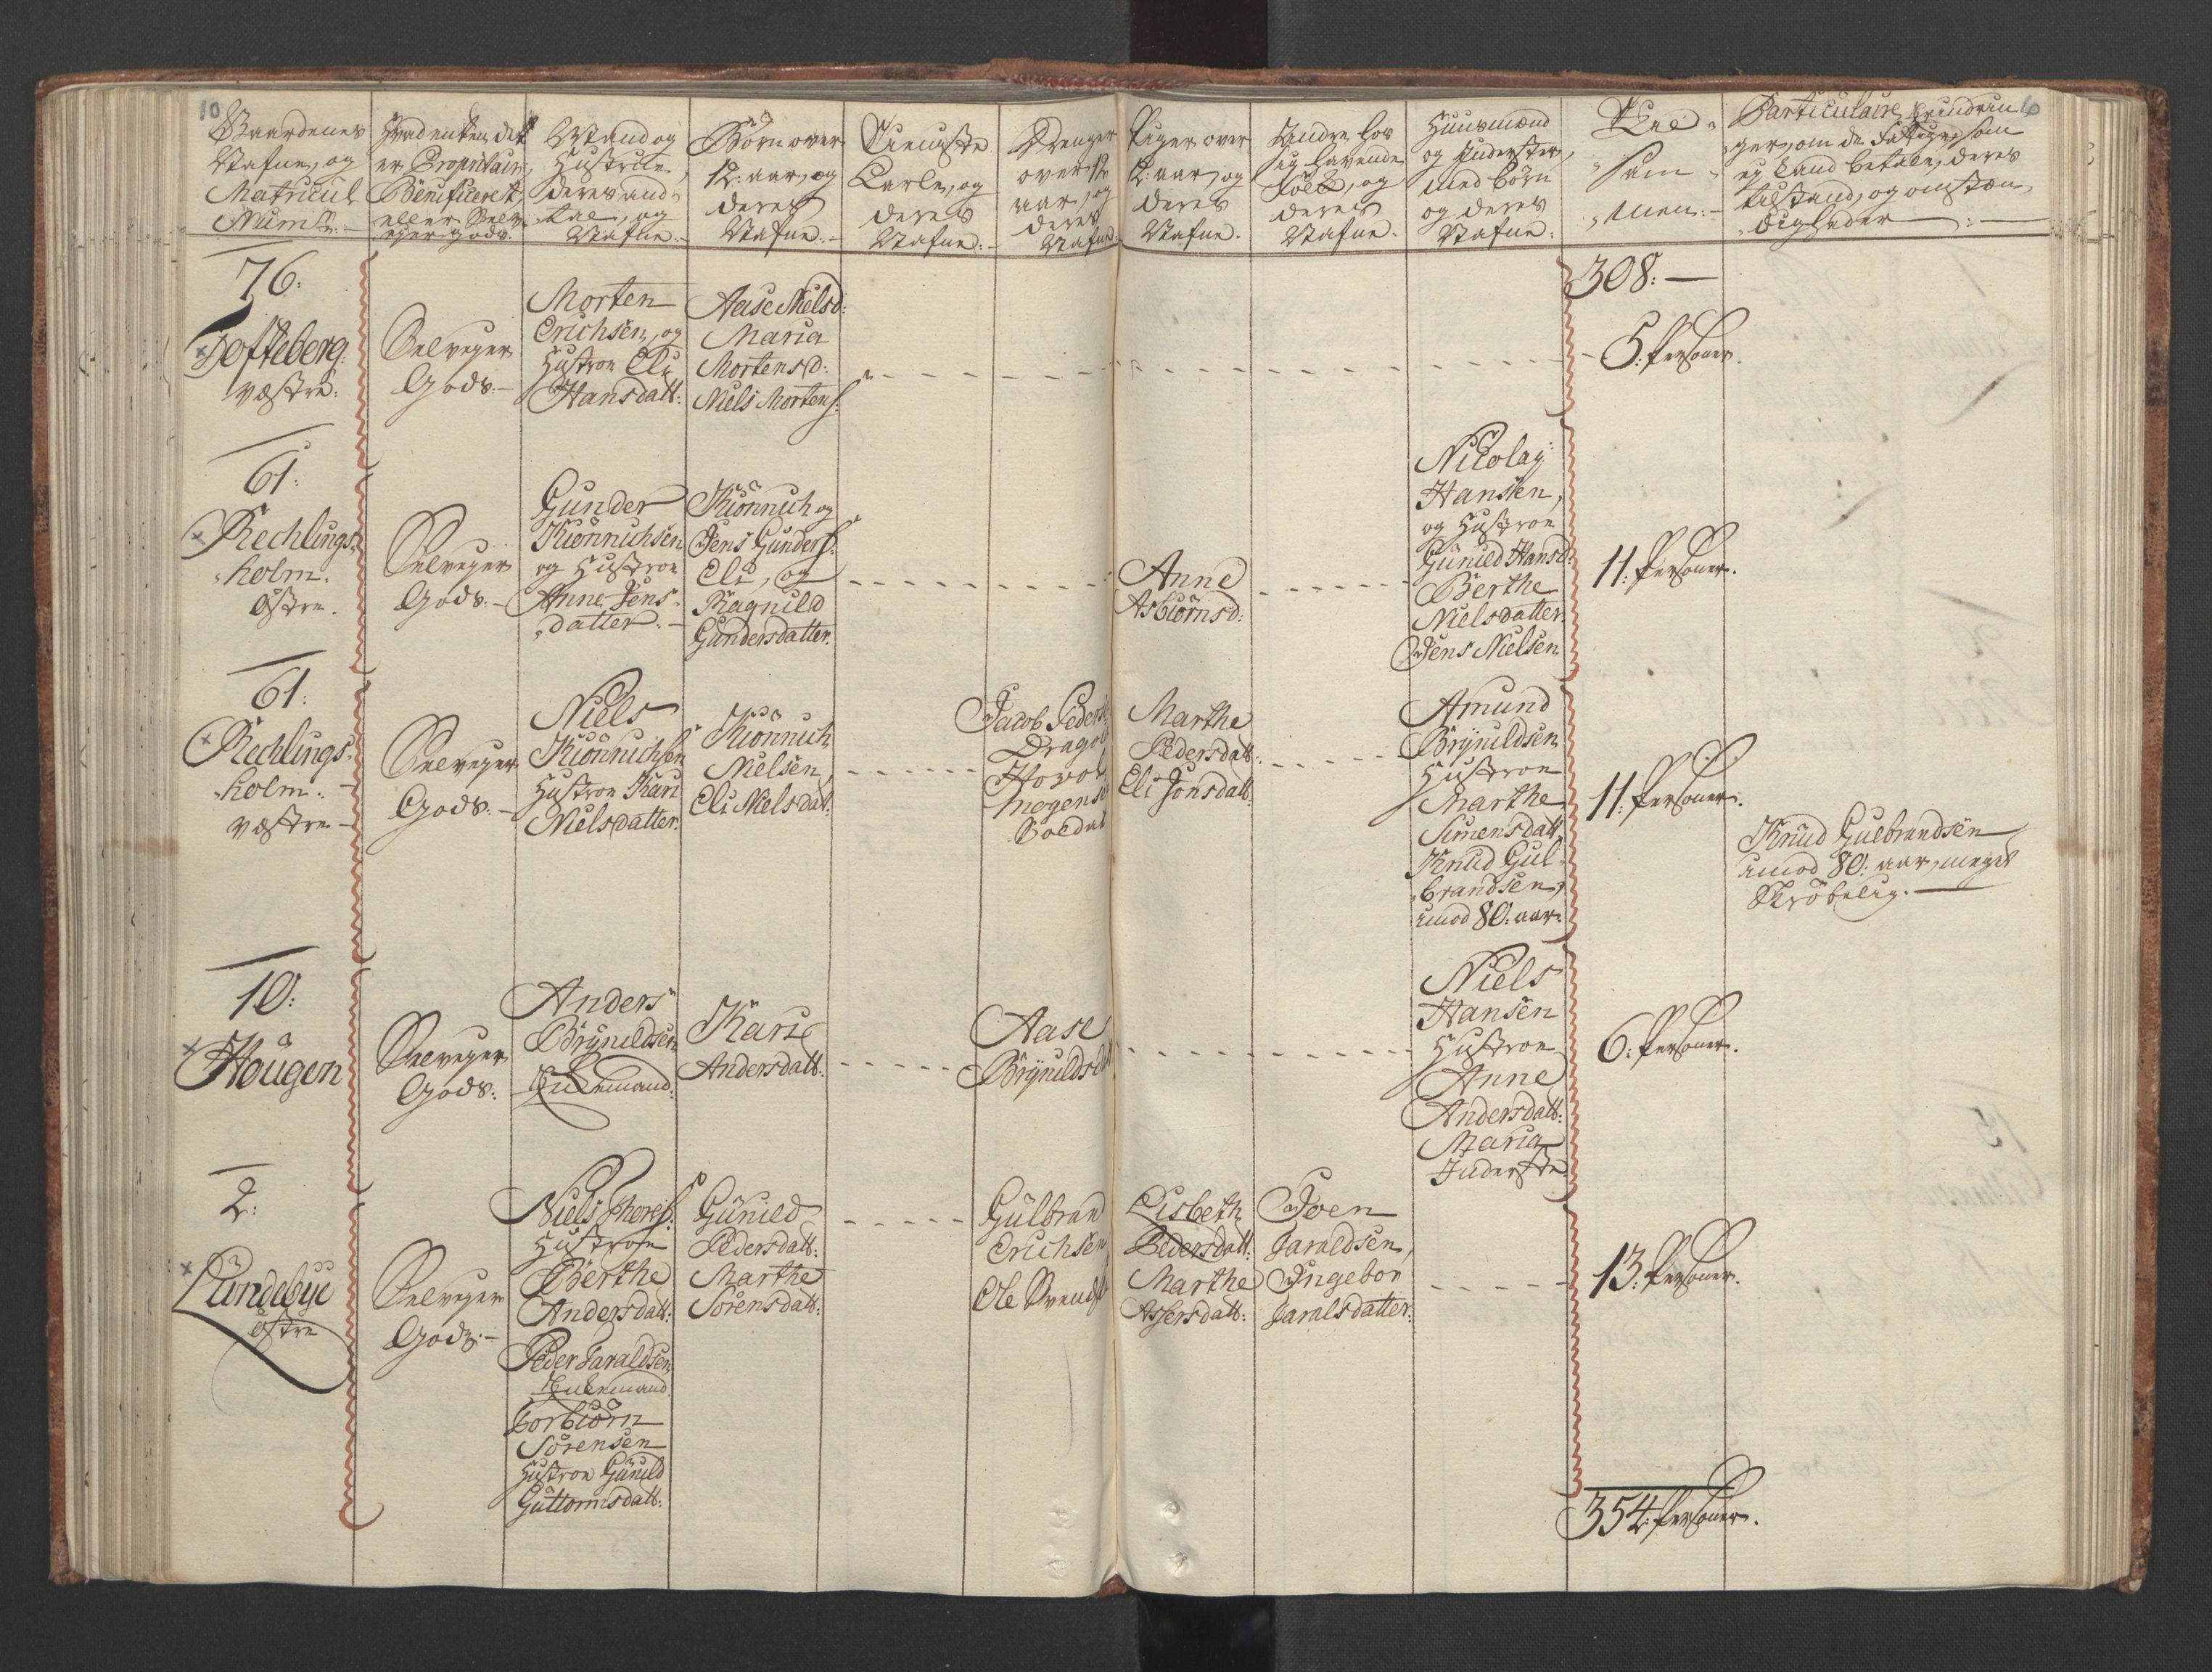 10
Gaardenes
Nafne, og
Matricul
Num:
Hvad enten det
er Proprietair,
Benificeret,
eller Selv-
ejer gods.
Mand og
Hustrue,
deres and-
tal, og
Nafne.
Børn over
12: aar, og
deres
Nafne.
Tieniste
Karle, og
deres
Nafne.
Drenge
over 12
aar, og
deres
Nafne
Piger over
12: aar, og
deres
Nafne.
Andre hos
sig havende
Folk, og
deres
Nafne.
Huusmænd
og Inderster,
med børn
og deres
Nafne.
Til-
sam-
men.
Particulaire Erindrin-
ger, om de fattige, som
ej kand betale, deres
tilstand, og omstæn-
digheder
308:
76:
Tofteberg
væstre.
Selvejer
Gods.
Morten
Erichsen, og
Hustroe Eli
Hansdatt:
Aase Nielsd:
Maria
Mortensd:
Niels Mortens:
5: Personer.
61:
Rechlings-
holm.
østre.
Selvejer
Gods.
Gunder
Kiønnichsen
og Hustroe
Anne Jens-
datter.
Kiønnich og
Jens Gunders:
Eli, og
Ragnild
Gundersdatter.
Anne
Asbiørnsd:
Nicolay
Hansen,
og Hustroe
Gunild Hansd:
Berthe
Nielsdatter.
Jens Nielsen
11: Personer.
61:
Rechlings-
holm.
væstre
Selvejer
Gods.
Niels
Kiønnichsen
Hustroe Kari
Nielsdatter.
Kiønnich
Nielsen,
Eli Nielsdat:
Jacob Peders:
Dragon
Hovel
Mogens:
Soldat
Marthe
Pedersdatt:
Eli Jonsdatt:
Amund
Brynildsen
Hustroe
Marthe
Simensdatt.
Knud Gul-
brandsen,
imod 80: aar.
11: Personer.
Knud Gulbrandsen
imod 80: aar, meget
Skrøbelig.
10:
Hougen
Selvejer
Gods.
Anders
Brynildsen
Enkemand.
Kari
Andersdatt:
Aase
Brynildsdat
Niels
Hansen
Hustroe
Anne
Andersdatt:
Maria
Inderste
6: Personer.
2:
Lundebye
østre
Selvejer
Gods.
Niels Thores:
Hustroe
Berthe
Andersdatt:
Peder Taraldsen
Enkemand.
Torbiørn
Sørensen
Hustroe Gunild
Guttormsdatt:
Gunild
Pedersdatt:
Marthe
Sørensdatt:
Gulbrand
Erichsen
Ole Svends
Lisbeth
Pedersdatt:
Marthe
Assersdatt:
Joen
Taraldsen,
Ingebor
Taralsdatter.
13: Personer.
354: Personer.